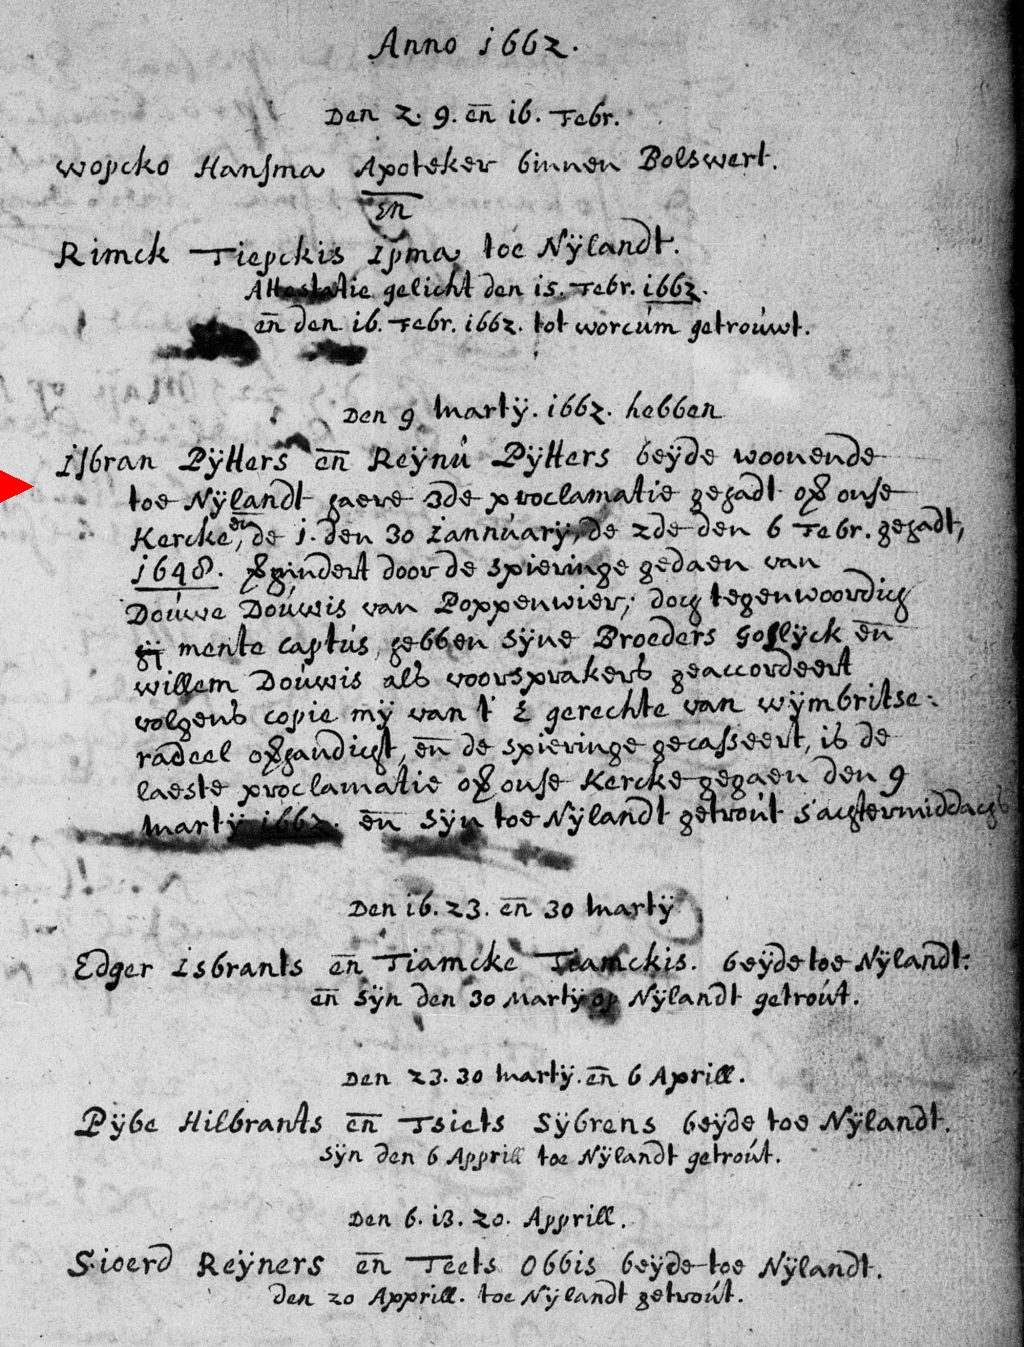 Anno 1662.
Den 2. 9. en̄ 16. Febr.
Wopcko Hansma Apoteker binnen Bolswert.
En
Rimck Tiepckis Ipma toe Nÿlandt.
Attestatie gelicht den 15. Febr. 1662.
en̄ den 16. Febr. 1662. tot worcúm getroúwt.
Den 9 Martÿ. 1662. hebben
Isbran Pÿtters en̄ Reÿnú Pÿtters beÿde woonende
toe Nÿlandt haere 3de proclamatie gehadt op onse
Kercke, en de 1. den 30 Iannúarÿ, de 2de den 6 Febr. gehadt,
1648. gehindert door de spieringe gedaen van
Doúwe Doúwis van Poppenwier; doch tegenwoordich
mente captús, hebben sÿne Broeders Goslÿck en̄
willem Doúwis als voorsprakers geaccordeert
volgens copie mÿ van 't gerechte van wÿmbritse:
radeel ophandicht, en̄ de spieringe gecasseert, is de
laeste proclamatie op onse Kercke gegaen den 9
Martÿ 1662. en̄ sÿn toe Nÿlandt getroút s'achtermiddachs
Den 16. 23. en̄ 30 Martÿ
Edger Isbrants en̄ Tiamcke Tiamckis. beÿde toe Nÿlandt:
en̄ sÿn den 30 Martÿ op Nÿlandt getroút.
Den 23. 30 Martÿ. en̄ 6 Aprill.
Pÿbe Hilbrants en̄ Tsiets Sÿbrens beÿde toe Nÿlandt.
sÿn den 6 Apprill toe Nÿlandt getroút.
Den 6. 13. 20. Apprill.
Sioerd Reÿners en̄ Teets Obbis beÿde toe Nÿlandt.
den 20 Apprill. toe Nÿlandt getroút.